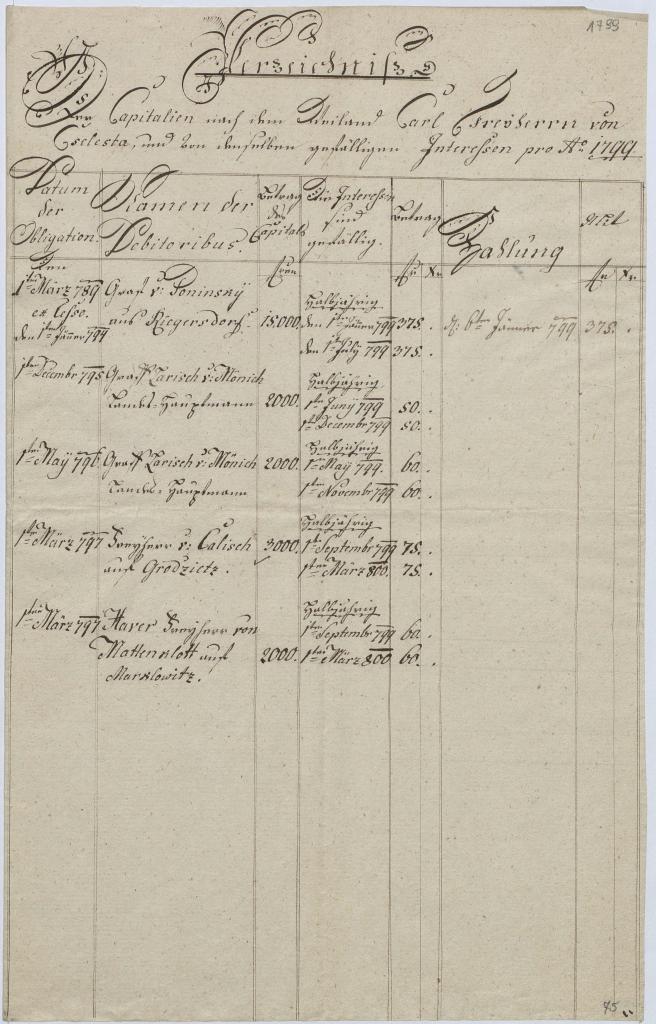 1799
Verzeichniß
Der Capitalien nach dem Weiland Carl Freyherrn von
Cselesta, und von denselben gefälligen Interessen pro Aō 1799
Datum der Obligation.
Namen der Debitoribus.
Betrag des Capitals
Die Interessen sind gefällig.
Betrag
Zahlung
fl. Xr.
fl. Xr.
Den
1ten März 789 Graf v: Poninsky
ex Cesso. aus Riegersdorf. 15000. Halbjährig
den 1ten Jänner 794 den 1ten Jänner 799 375. . d: 6ten Jänner 799 375. .
den 1ten July 799 375. .
1ten Decembr 795 Graf Larisch v: Mönich Halbjährig
Landes-Hauptmann 2000. 1ten Juny 799 50. .
1ten Decembr 799 50. .
Halbjährig
1ten May 796. Graf Larisch v: Mönich 2000. 1ten May 799. 60. .
Landes-Hauptmann 1ten Novembr 799 60. .
Halbjährig
1ten März 797 Freyherr v: Calisch 3000. 1ten Septembr 799 75. .
auf Grodzietz. 1ten März 800. 75. .
Halbjährig
1ten März 797 Freyherr von 1ten Septembr 799 60. .
Mattenklott auf 2000. 1ten März 800 60. .
Marklowitz.
75